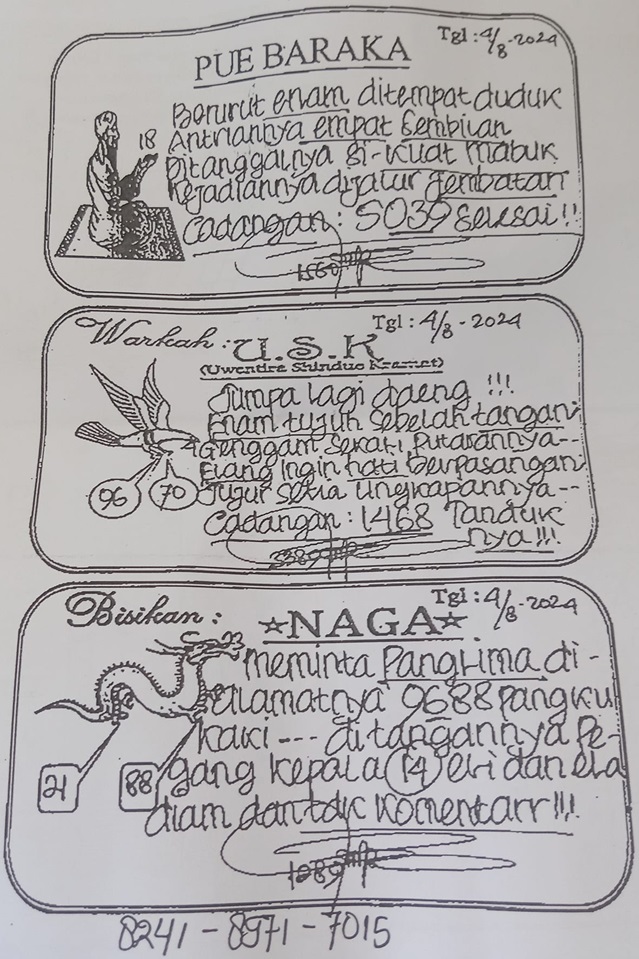 Tgl : 4/8-2024
PUE BARAKA
Berurut enam ditempat duduk
Antriannya empat sembilan
18
Ditanggalnya si-kuat mabuk
Kejadiannya dijalur jembatan
Cadangan : 5039 Selesai !!
Tgl : 4/8 - 2024
Warkah : U.S.K
(Uwentira Shinduo Kramat)
Jumpa lagi daeng !!!
Enam tujuh sebelah tangan
Genggam sekali putarannya--
Elang ingin hati berpasangan
96 70 Jujur setia ungkapannya--
Cadangan : 1468 Tanduk
nya !!!
Tgl : 4/8-2024
Bisikan :
☆NAGA☆
meminta Panglima di -
alamatnya 9688 pangku
kaki --- ditangannya Pe-
21 88 gang kepala 14 eli dan ela
diam dan tdk komentarr !!!
8241 - 8971 - 7015